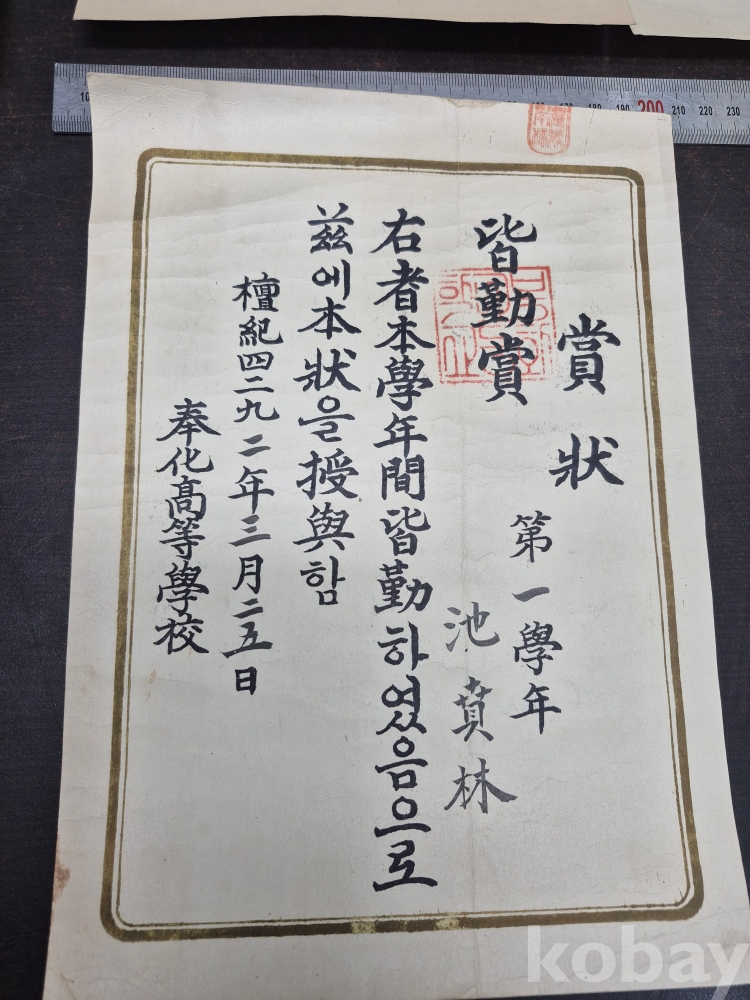 賞狀
第一學年
皆勤賞
池賁林
右者本學年間皆勤하였음으로
玆에本狀을授與함
檀紀四二九二年三月二五日
奉化高等學校
200 210 220 230
kobay